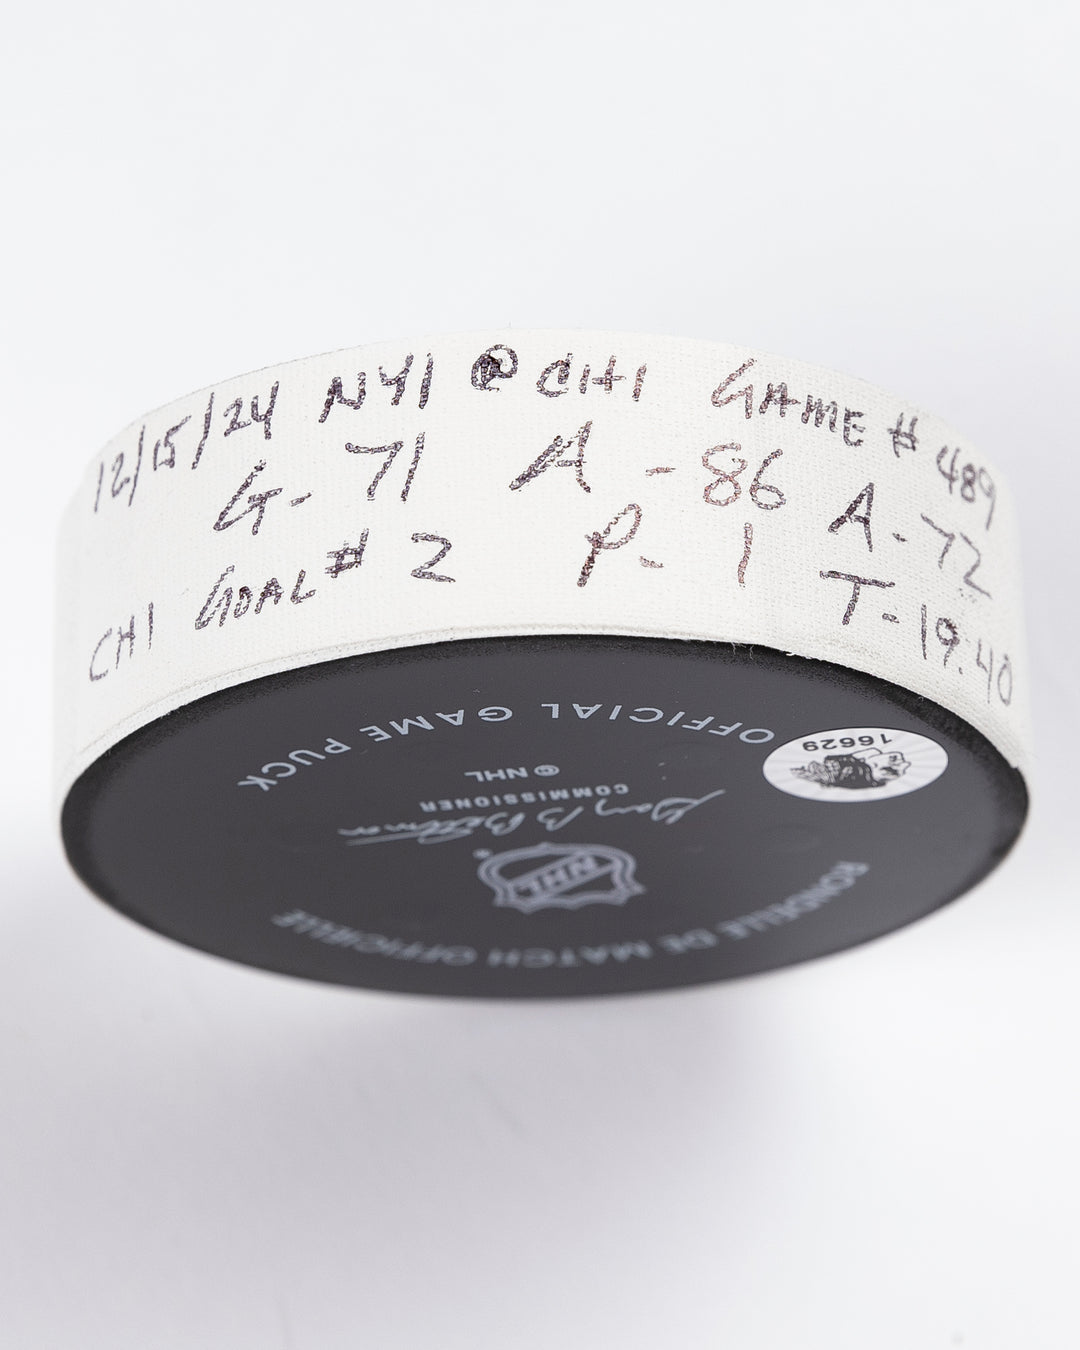 12/15/24 NYI @ CHI GAME # 489
G- 71 A - 86 A - 72
CHI GOAL # 2 P- 1 T - 19:40
OFFICIAL GAME PUCK
© NHL
COMMISSIONER
Gary B Bettman
NHL
RONDELLE DE MATCH OFFICIELLE
16629